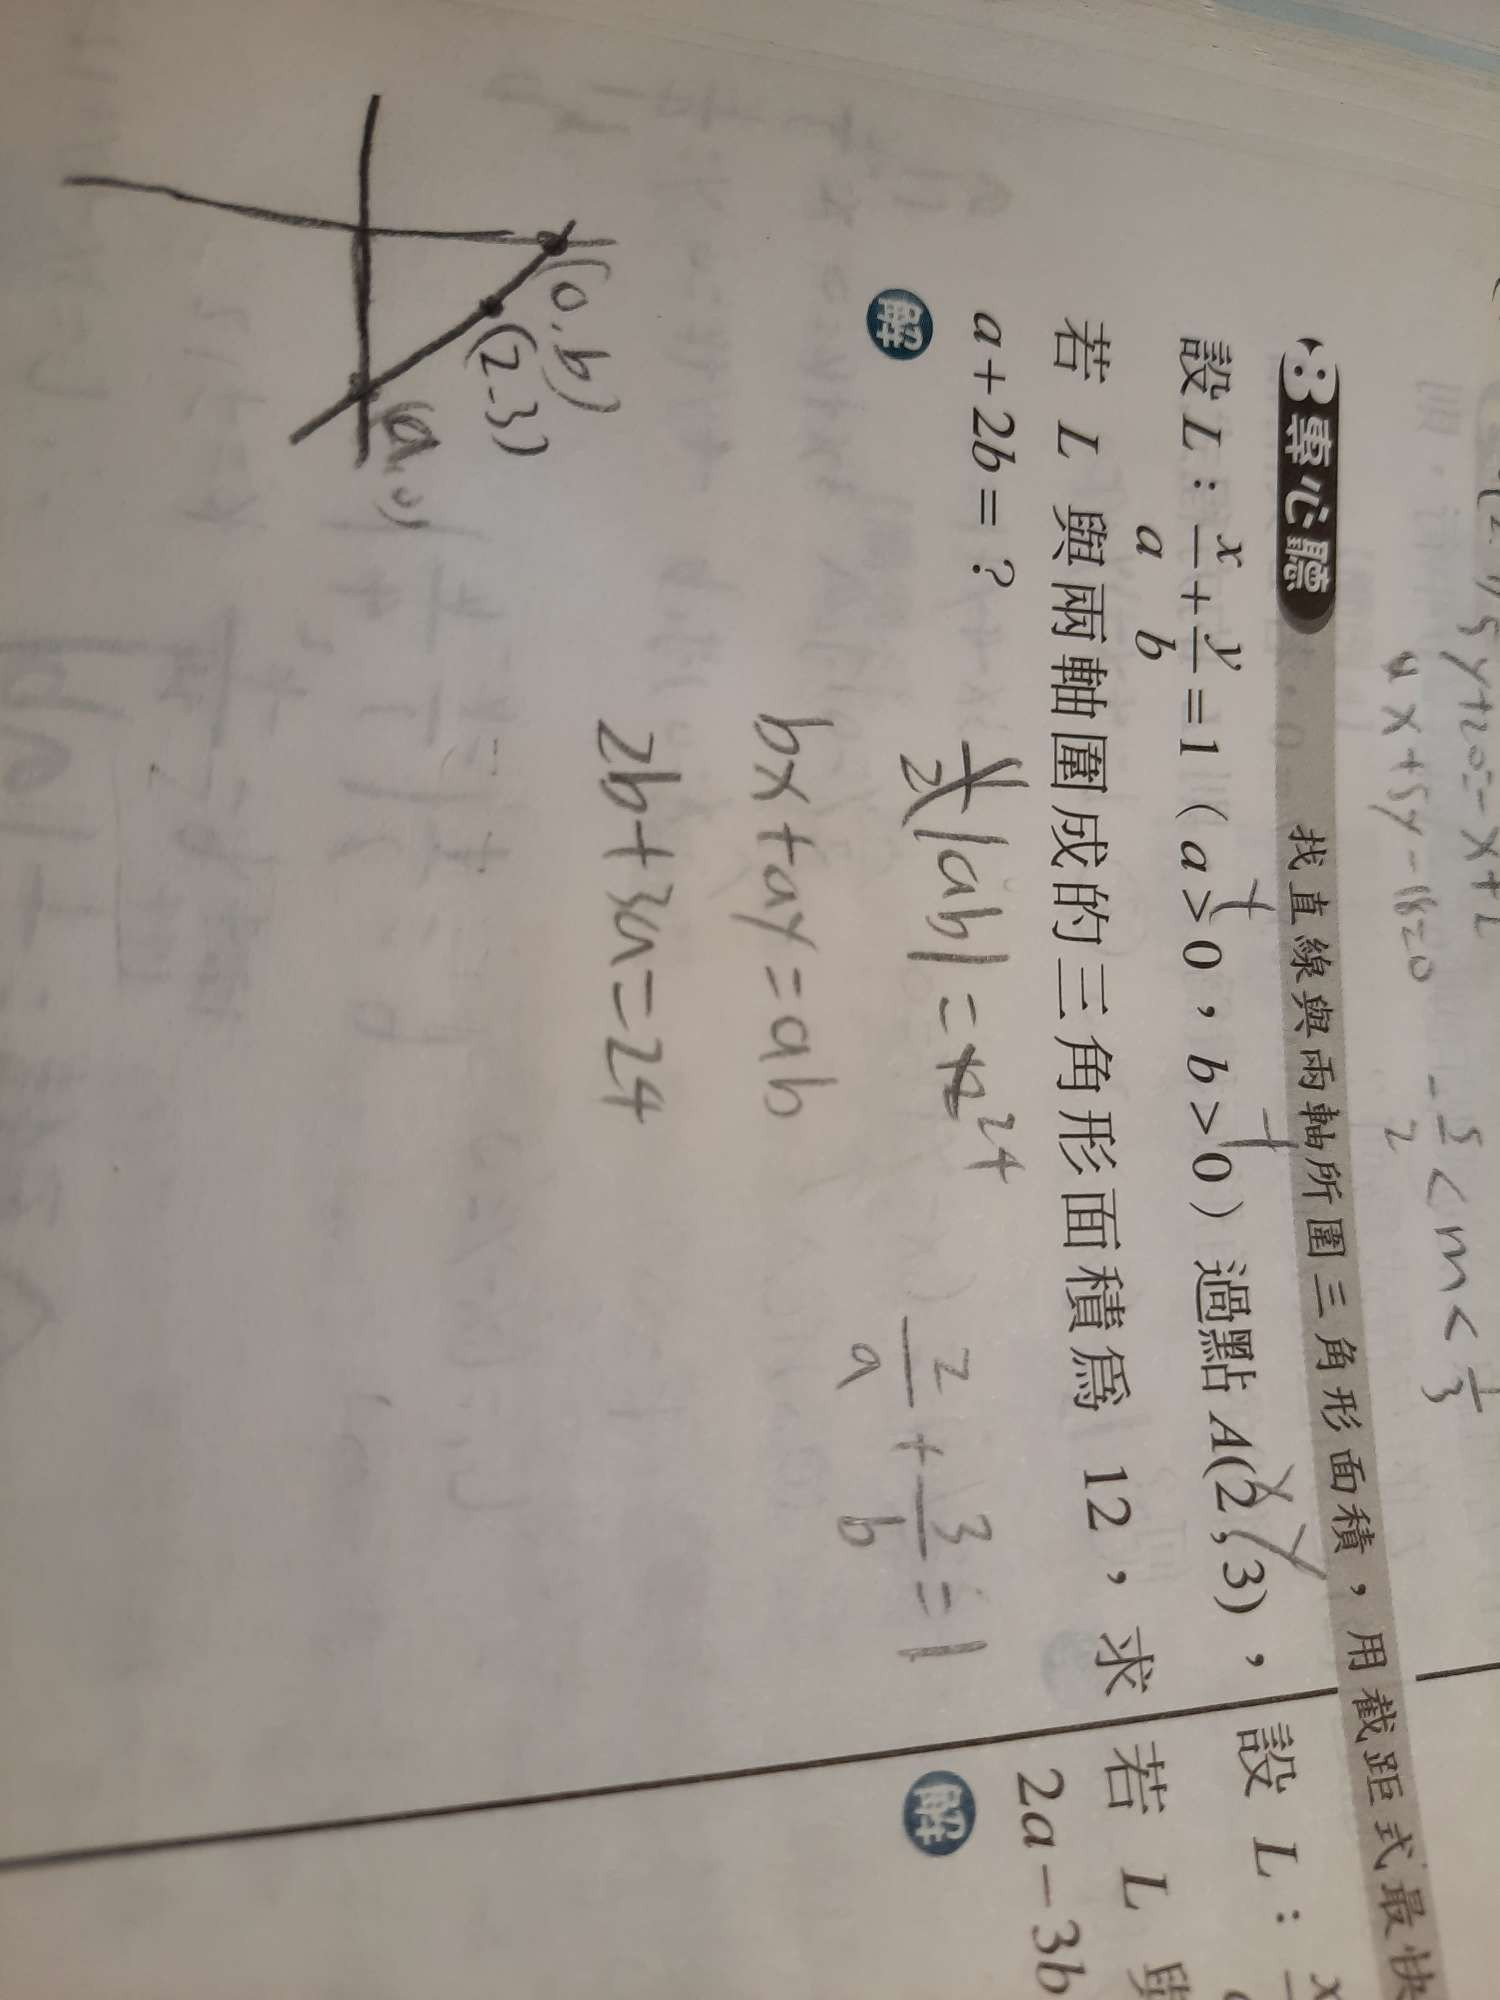 4x+5y-18=0
3 專心聽 找直線與兩軸所圍三角形面積,用截距式最快
設 L:x/a+y/b=1(a>0,b>0)過點 A(2,3),
若 L 與兩軸圍成的三角形面積為 12,求
a+2b=?
解
1/2|ab|=12 24
2/a+3/b=1
bx+ay=ab
2b+3a=24
(0,b)
(2-3)
(a,0)
設 L:x
若 L 與
2a-3b
解